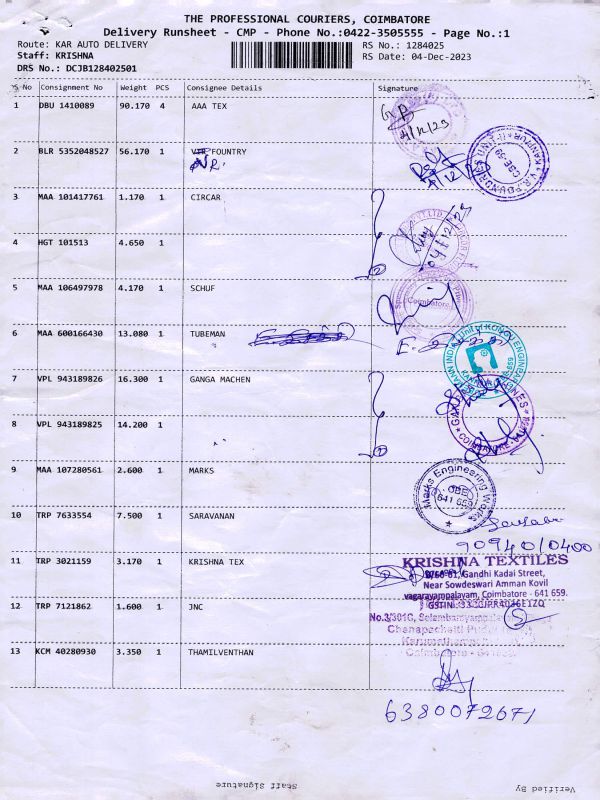 THE PROFESSIONAL COURIERS, COIMBATORE
Delivery Runsheet - CMP - Phone No.:0422-3505555 - Page No.:1
Route: KAR AUTO DELIVERY RS No.: 1284025
Staff: KRISHNA RS Date: 04-Dec-2023
DRS No.: DCJB128402501
No Consignment No Weight PCS Consignee Details Signature
1 DBU 1410089 90.170 4 AAA TEX
4/12/23
2 BLR 5352048527 56.170 1 FOUNTRY
3 MAA 101417761 1.170 1 CIRCAR
4 HGT 101513 4.650 1
04/12/23
5 MAA 106497978 4.170 1 SCHUF
Coimbatore
6 MAA 600166430 13.080 1 TUBEMAN
7 VPL 943189826 16.300 1 GANGA MACHEN
8 VPL 943189825 14.200 1
9 MAA 107280561 2.600 1 MARKS
Marks Engineering Works
CBE
641 659
10 TRP 7633554 7.500 1 SARAVANAN
9094010400
11 TRP 3021159 3.170 1 KRISHNA TEX
KRISHNA TEXTILES
Gandhi Kadai Street,
Near Sowdeswari Amman Kovil
vagarayampalayam, Coimbatore - 641 659.
12 TRP 7121862 1.600 1 JNC
13 KCM 40280930 3.350 1 THAMILVENTHAN
6380072671
Staff Signature
Verified By